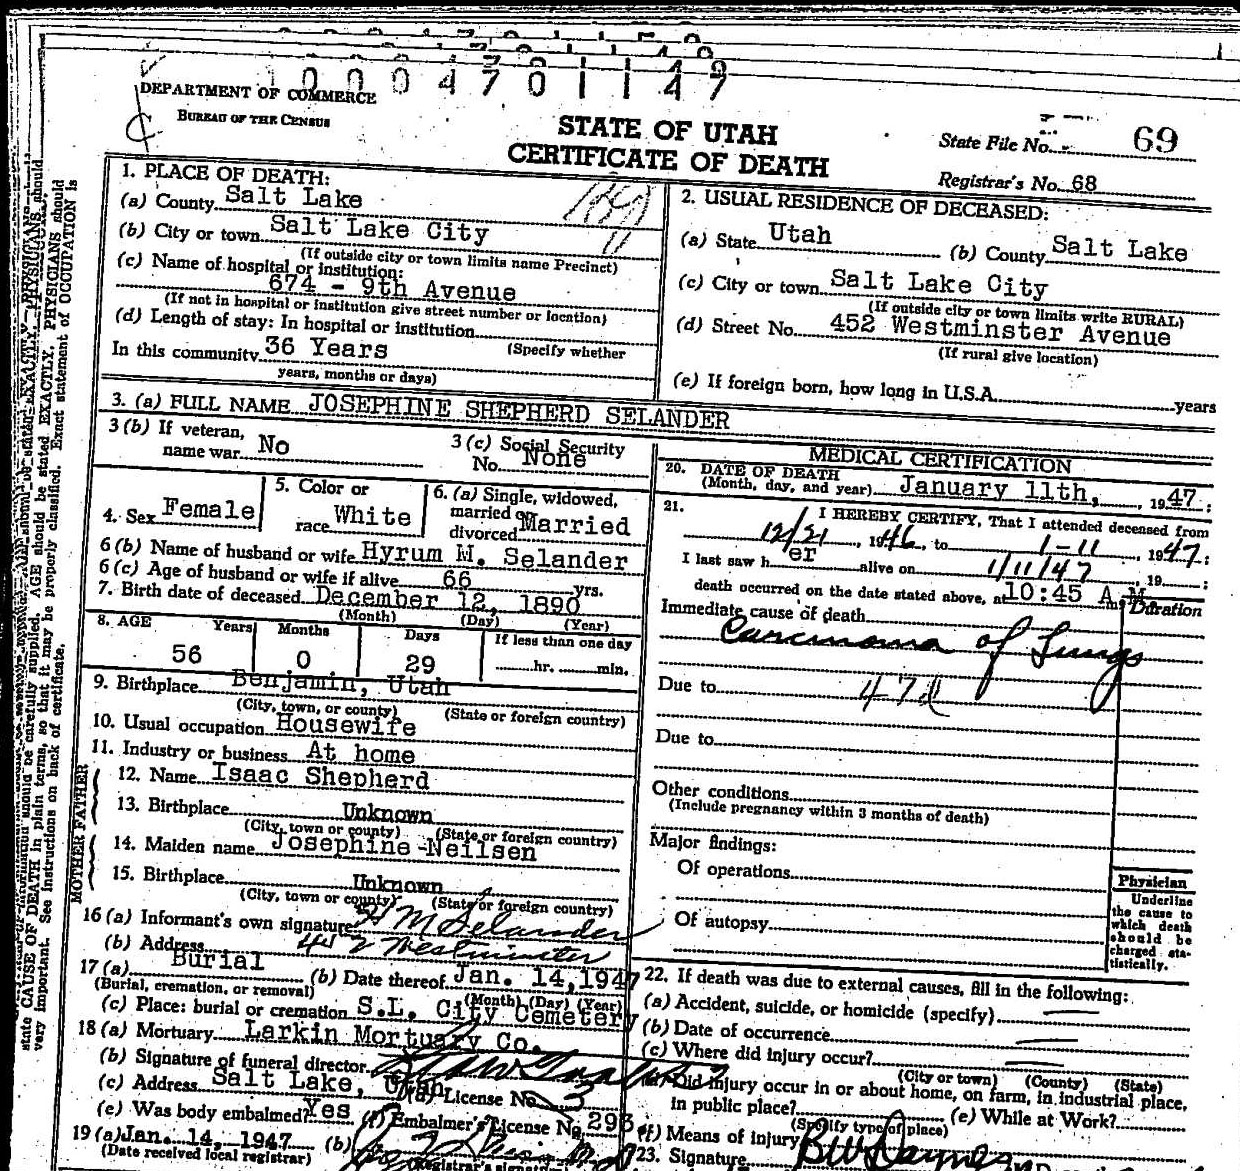 0004701147
DEPARTMENT OF COMMERCE
BUREAU OF THE CENSUS
STATE OF UTAH
CERTIFICATE OF DEATH
State File No. 69
Registrar's No. 68
1. PLACE OF DEATH:
(a) County Salt Lake
(b) City or town Salt Lake City
(If outside city or town limits name Precinct)
(c) Name of hospital or institution:
674 - 9th Avenue
(If not in hospital or institution give street number or location)
(d) Length of stay: In hospital or institution
(Specify whether
In this community 36 Years
years, months or days)
2. USUAL RESIDENCE OF DECEASED:
(a) State Utah (b) County Salt Lake
(c) City or town Salt Lake City
(If outside city or town limits write RURAL)
(d) Street No. 452 Westminster Avenue
(If rural give location)
(e) If foreign born, how long in U.S.A. years
3. (a) FULL NAME JOSEPHINE SHEPHERD SELANDER
3 (b) If veteran,
name war No
3 (c) Social Security
No. None
4. Sex Female
5. Color or
race White
6. (a) Single, widowed,
married or
divorced Married
6 (b) Name of husband or wife Hyrum M. Selander
6 (c) Age of husband or wife if alive 66 yrs.
7. Birth date of deceased December 12, 1890
(Month) (Day) (Year)
8. AGE Years Months Days If less than one day
56 0 29 hr. min.
9. Birthplace Benjamin, Utah
(City, town, or county) (State or foreign country)
10. Usual occupation Housewife
11. Industry or business At home
FATHER
12. Name Isaac Shepherd
13. Birthplace Unknown
(City, town or county) (State or foreign country)
MOTHER
14. Maiden name Josephine Neilsen
15. Birthplace Unknown
(City, town or county) (State or foreign country)
16 (a) Informant's own signature H M Selander
(b) Address 452 Westminster
17 (a) Burial (b) Date thereof Jan. 14, 1947
(Burial, cremation, or removal) (Month) (Day) (Year)
(c) Place: burial or cremation S.L. City Cemetery
18 (a) Mortuary Larkin Mortuary Co.
(b) Signature of funeral director
(c) Address Salt Lake, Utah (d) License No. 3
(e) Was body embalmed? Yes (f) Embalmer's License No. 293
19 (a) Jan. 14, 1947 (b)
(Date received local registrar) (Registrar's
MEDICAL CERTIFICATION
20. DATE OF DEATH
(Month, day, and year) January 11th, 1947;
21. I HEREBY CERTIFY, That I attended deceased from
12/21, 1946, to 1-11, 1947;
I last saw her alive on 1/11/47, 19 ;
death occurred on the date stated above, at 10:45 A.M.
Duration
Immediate cause of death
Carcinoma of Lungs
Due to 47d
Due to
Other conditions
(Include pregnancy within 3 months of death)
Major findings:
Of operations
Of autopsy
Physician
Underline
the cause to
which death
should be
charged sta-
tistically.
22. If death was due to external causes, fill in the following:
(a) Accident, suicide, or homicide (specify)
(b) Date of occurrence
(c) Where did injury occur?
(City or town) (County) (State)
Did injury occur in or about home, on farm, in industrial place,
in public place? (e) While at Work?
(Specify type of place)
(f) Means of injury
23. Signature
should be carefully supplied. AGE should be stated EXACTLY. PHYSICIANS should
state CAUSE OF DEATH in plain terms, so that it may be properly classified. Exact statement of OCCUPATION is
very important. See instructions on back of certificate.